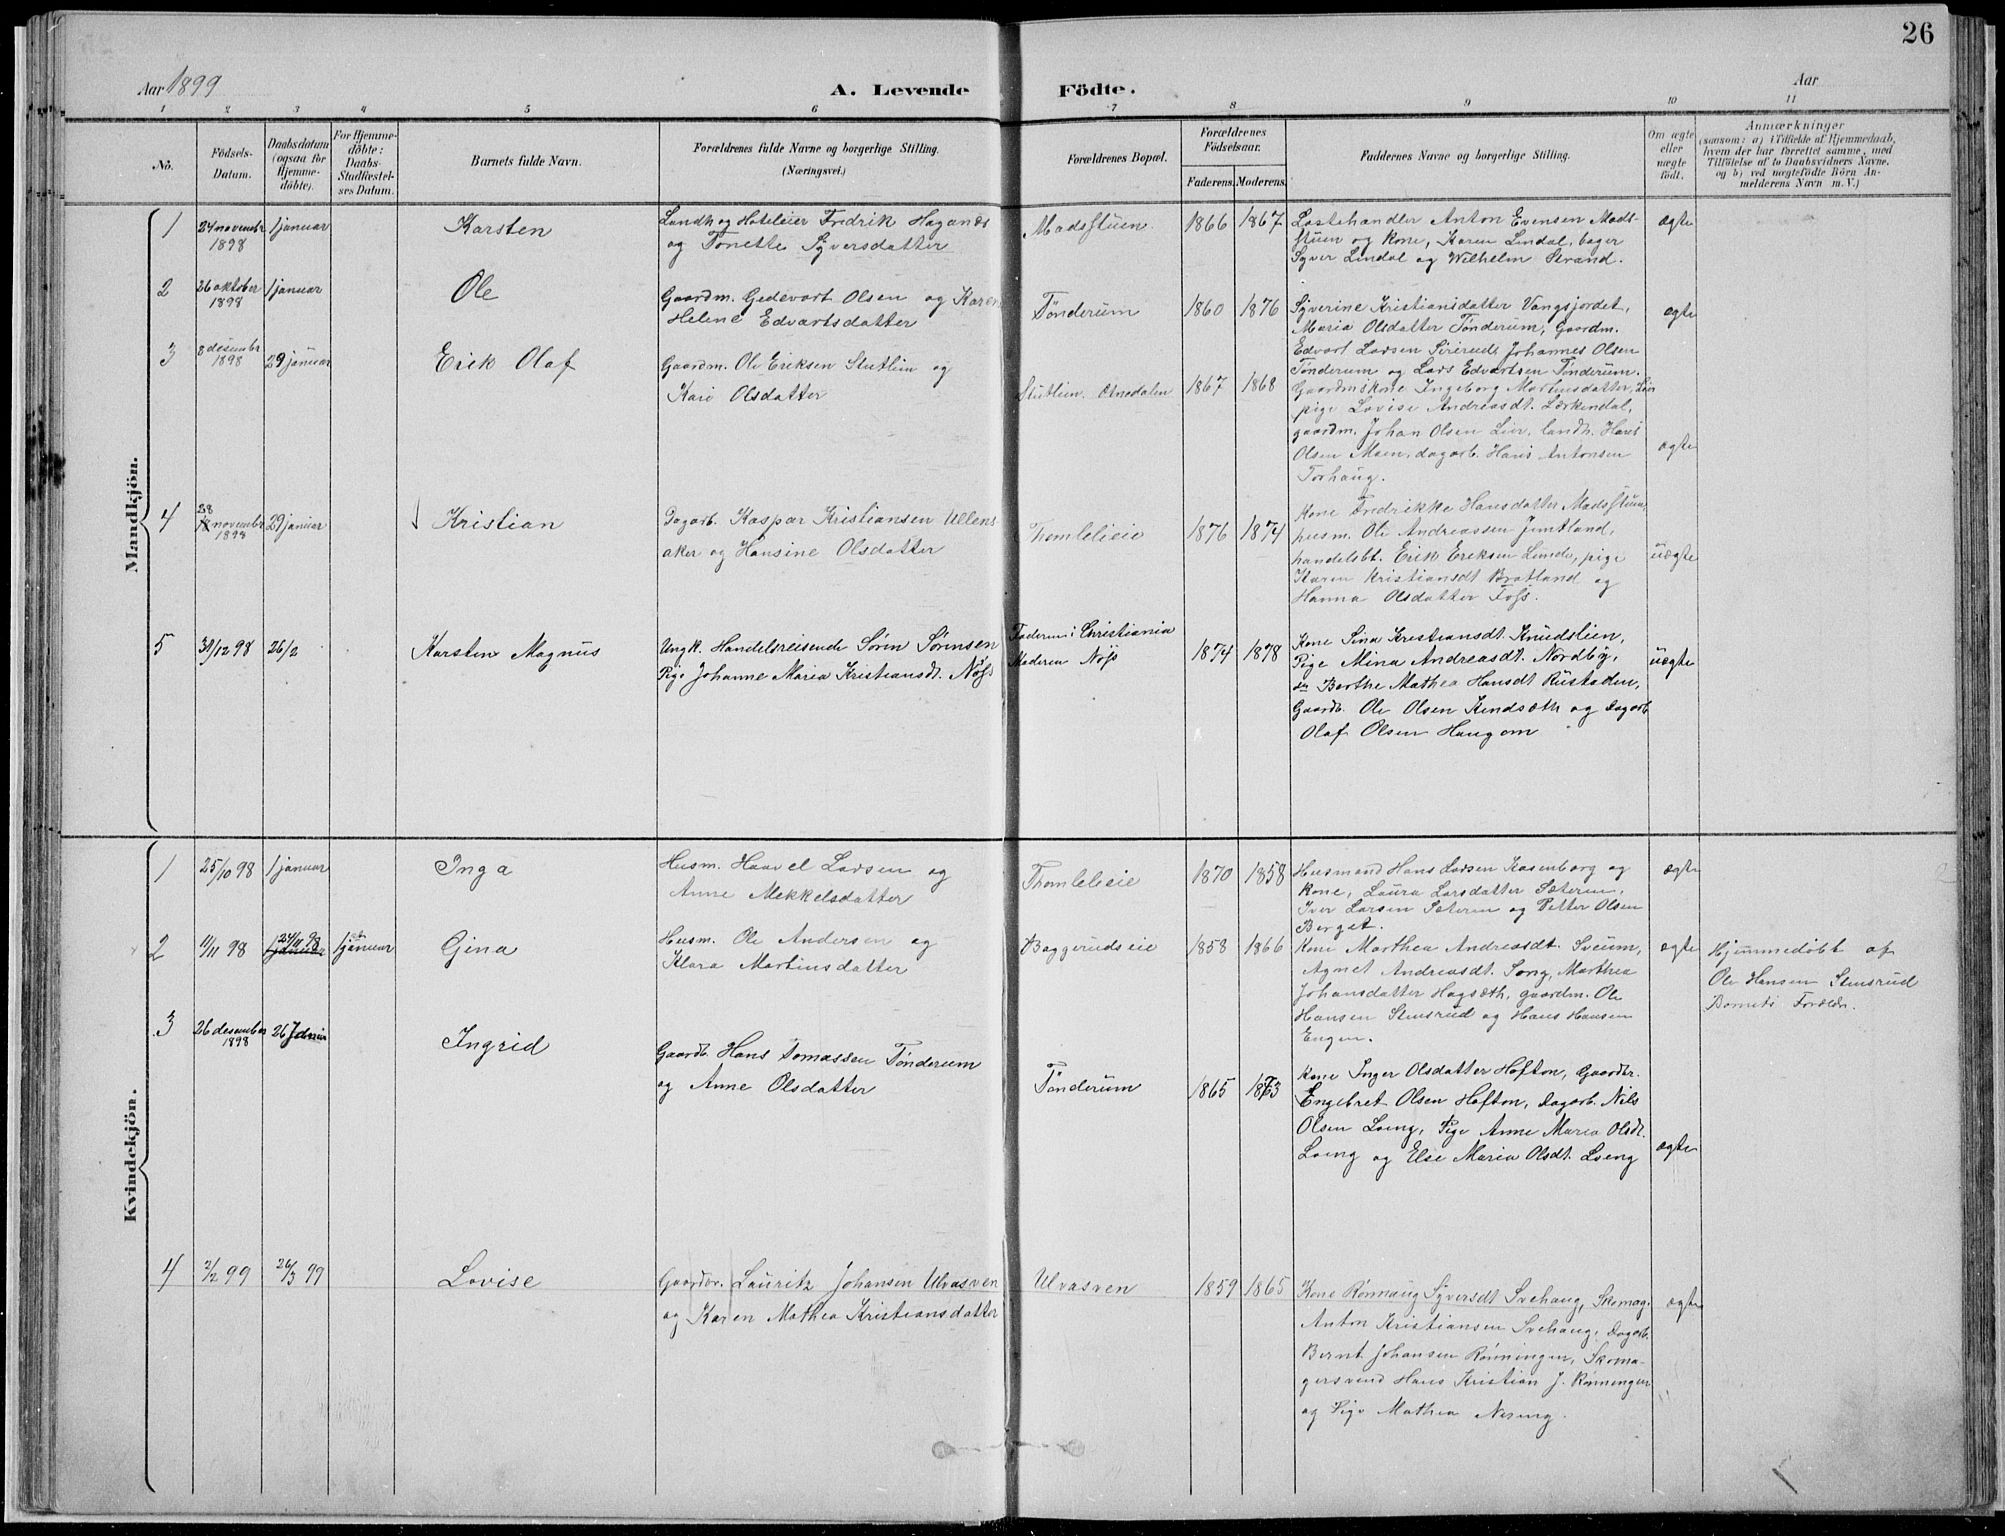 26
Aar 1899
A. Levende Födte.
Aar
1 2 3 4 5 6 7 8 9 10 11
No.
Födsels-
Datum.
Daabsdatum
(ogsaa for
Hjemme-
döbte).
For Hjemme-
döbte:
Daabs-
Stadfæstel-
ses Datum.
Barnets fulde Navn.
Forældrenes fulde Navne og borgerlige Stilling.
(Næringsvei.)
Forældrenes Bopæl.
Forældrenes
Födselsaar.
Faderens. Moderens.
Faddernes Navne og borgerlige Stilling.
Om ægte
eller
uægte
födt.
Anmærkninger
(saasom: a) i Tilfælde af Hjemmedaab,
hvem der har forrettet samme, med
Tilföielse af to Daabsvidners Navne,
og b) ved uægtefödte Börn An-
melderens Navn m. V.)
Mandkjön.
1
24 novembr
1898
1 januar
Karsten
Landh og Hoteleier Fredrik Haganæs
og Tonette Syversdatter
Madsstuen
1866 1867
Lastehandler Anton Evensen Mads-
stuen og kone, Karen Lindal, bager
Syver Lindal og Wilhelm Strand.
ægte
2
26 oktober
1898
1 januar
Ole
Gaardm. Gedevart Olsen og Karen
Helene Edvartsdatter
Tønderum
1860 1876
Syverine Kristiansdatter Vangsjordet,
Maria Olsdatter Tønderum, Gaardm.
Edvart Larsen Sirerud, Johannes Olsen
Tønderum og Lars Edvartsen Tønderum.
ægte
3
8 desembr
1898
29 januar
Erik Olaf
Gaardm. Ole Eriksen Slutlein og
Kari Olsdatter
Slutlein Odnedalen
1867 1868
Gaardmskone Ingeborg Martinsdatter Lier
pige Lovise Andreasdt. Lærkendal,
gaardm. Johan Olsen Lier, landh. Hans
Olsen Moen, dagarb. Hans Antonsen
Torhaug.
ægte
4
28
novembr
1898
29 januar
Kristian
Dagarb. Kaspar Kristiansen Ullens
aker og Hansine Olsdatter
Thomleleie
1876 1874
Kone Fredrikke Hansdatter Madsstuen,
husm. Ole Andreassen Jemtland,
handelsbt. Erik Eriksen Linde, pige
Karen Kristiansdt Bratland og
Hanna Olsdatter Foss.
uægte
5
31/12 98
26/2
Karsten Magnus
Ungk. Handelsreisende Sørin Sørensen
Pige Johanne Maria Kristiansdt. Nøss
Faderen i Christiania
Moderen Nøss
1874 1878
Kone Sina Kristiansdt. Knudslien,
Pige Mina Andreasdt. Nordby,
do Berthe Mathea Hansdt Rustaden,
Gaardb. Ole Olsen Kindsæth og Dagarb
Olaf Olsen Haugom
uægte
Kvindekjön.
1
25/10 98
1 januar
Inga
Husm. Haavel Larsen og
Anne Mekkelsdatter
Thomleleie
1870 1858
Husmand Hans Larsen Kasenborg og
kone, Laura Larsdatter Sæteren,
Iver Larsen Sæteren og Petter Olsen
Berget.
ægte
2
11/11 98
24/11 98
1 januar
1 januar
Gina
Husm. Ole Andersen og
Klara Martinsdatter
Baggerudseie
1858 1866
Kone Marthea Andreasdt. Sveum,
Agnet Andreasdt. Song, Marthea
Johansdatter Hagsæth, gaardm. Ole
Hansen Stensrud og Hans Hansen
Engen.
ægte
Hjemmedøbt af
Ole Hansen Stensrud
Barnets Forældr.
3
26 desember
1898
26
Ingrid
Gaardb. Hans Tomassen Tønderum
og Anne Olsdatter
Tønderum
1865 1873
Kone Inger Olsdatter Hofton, Gaardbr.
Engebret Olsen Hofton, Dagarb. Nils
Olsen Loeng, Pige Anne Maria Olsdt.
Loeng og Else Maria Olsdt. Loeng
ægte
4
2/2 99
26/3 99
Lovise
Gaardbr. Lauritz Johansen Ulvasven
og Karen Mathea Kristiansdatter
Ulvasven
1859 1865
Kone Rønnaug Syversdt Svehaug, Skomag.
Anton Kristiansen Svehaug, Dagarb.
Bernt Johansen Rønningen, Skoma-
gersvend Hans Kristian J. Rønningen
og Pige Mathea Nesing.
ægte